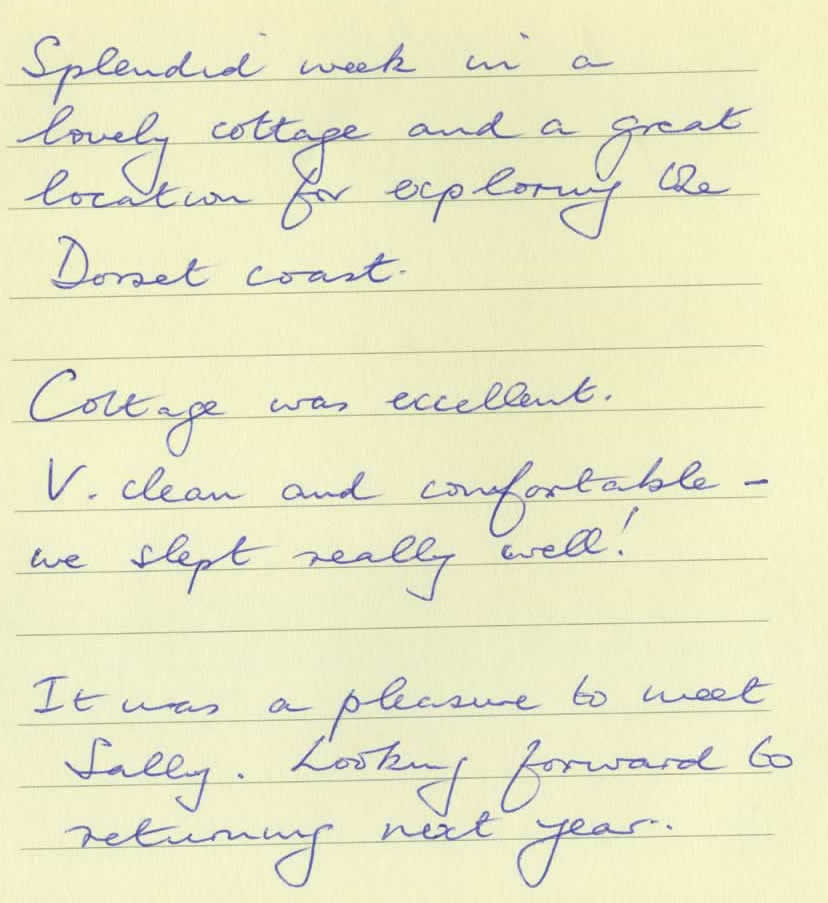 Splendid week in a
lovely cottage and a great
location for exploring the
Dorset coast.
Cottage was excellent.
V. clean and comfortable -
we slept really well!
It was a pleasure to meet
Sally. Looking forward to
returning next year.